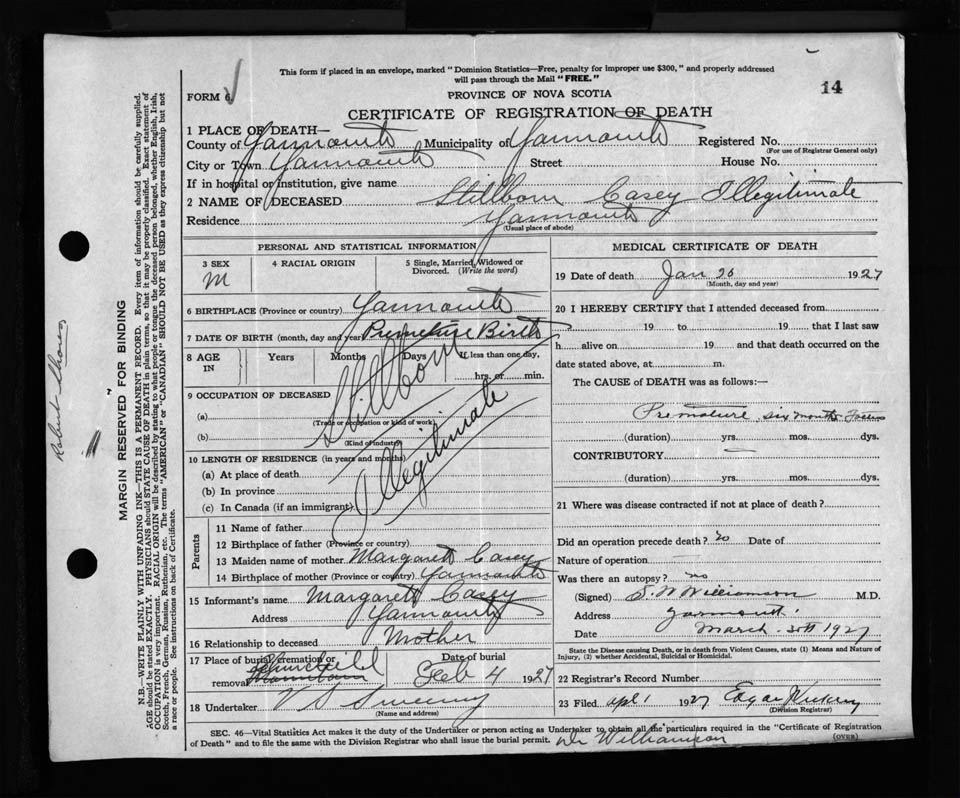 This form if placed in an envelope, marked "Dominion Statistics—Free, penalty for improper use $300," and properly addressed
will pass through the Mail "FREE."
14
FORM 6
PROVINCE OF NOVA SCOTIA
CERTIFICATE OF REGISTRATION OF DEATH
1 PLACE OF DEATH—
County of Yarmouth Municipality of Yarmouth Registered No.
(For use of Registrar General only)
City or Town Yarmouth Street House No.
If in hospital or institution, give name
2 NAME OF DECEASED Stillborn Casey Illegitimate
Residence Yarmouth
(Usual place of abode)
PERSONAL AND STATISTICAL INFORMATION
3 SEX 4 RACIAL ORIGIN 5 Single, Married, Widowed or
Divorced. (Write the word)
M
6 BIRTHPLACE (Province or country) Yarmouth
7 DATE OF BIRTH (month, day and year) Premature Birth
8 AGE IN Years Months Days If less than one day,
hrs. or min.
Stillborn
Illegitimate
9 OCCUPATION OF DECEASED
(a)
(Trade or occupation or kind of work)
(b)
(Kind of industry)
10 LENGTH OF RESIDENCE (in years and months)
(a) At place of death
(b) In province
(c) In Canada (if an immigrant)
Parents
11 Name of father
12 Birthplace of father (Province or country)
13 Maiden name of mother Margaret Casey
14 Birthplace of mother (Province or country) Yarmouth
15 Informant's name Margaret Casey
Address Yarmouth
16 Relationship to deceased Mother
17 Place of burial, cremation or removal
Date of burial Feb 4 1927
18 Undertaker V S Sweeny
(Name and address)
MEDICAL CERTIFICATE OF DEATH
19 Date of death Jan 26 1927
(Month, day and year)
20 I HEREBY CERTIFY that I attended deceased from
19 to 19 that I last saw
h alive on 19 and that death occurred on the
date stated above, at m.
The CAUSE of DEATH was as follows:—
Premature six months
(duration) yrs. mos. dys.
CONTRIBUTORY
(duration) yrs. mos. dys.
21 Where was disease contracted if not at place of death?
Did an operation precede death? no Date of
Nature of operation
Was there an autopsy? no
(Signed) S. W Williamson M.D.
Address Yarmouth
Date March 30th 1927
State the Disease causing Death, or in death from Violent Causes, state (1) Means and Nature of
Injury, (2) whether Accidental, Suicidal or Homicidal.
22 Registrar's Record Number
23 Filed Apl 1 1927 Edgar
(Division Registrar)
SEC. 46—Vital Statistics Act makes it the duty of the Undertaker or person acting as Undertaker to obtain all the particulars required in the "Certificate of Registration
of Death" and to file the same with the Division Registrar who shall issue the burial permit.
Dr Williamson
(OVER)
MARGIN RESERVED FOR BINDING
N.B.—WRITE PLAINLY WITH UNFADING INK—THIS IS A PERMANENT RECORD. Every item of information should be carefully supplied.
AGE should be stated EXACTLY. PHYSICIANS should STATE CAUSE OF DEATH in plain terms, so that it may be properly classified. Exact statement of
OCCUPATION is very important. RACIAL ORIGIN will be described by stating to what people or tongue the deceased person belonged, whether English, Irish,
Scotch, French, German, Russian, Ruthenian, etc. The terms "AMERICAN" or "CANADIAN" SHOULD NOT BE USED as they express citizenship but not
a race or people. See instructions on back of Certificate.
Robert